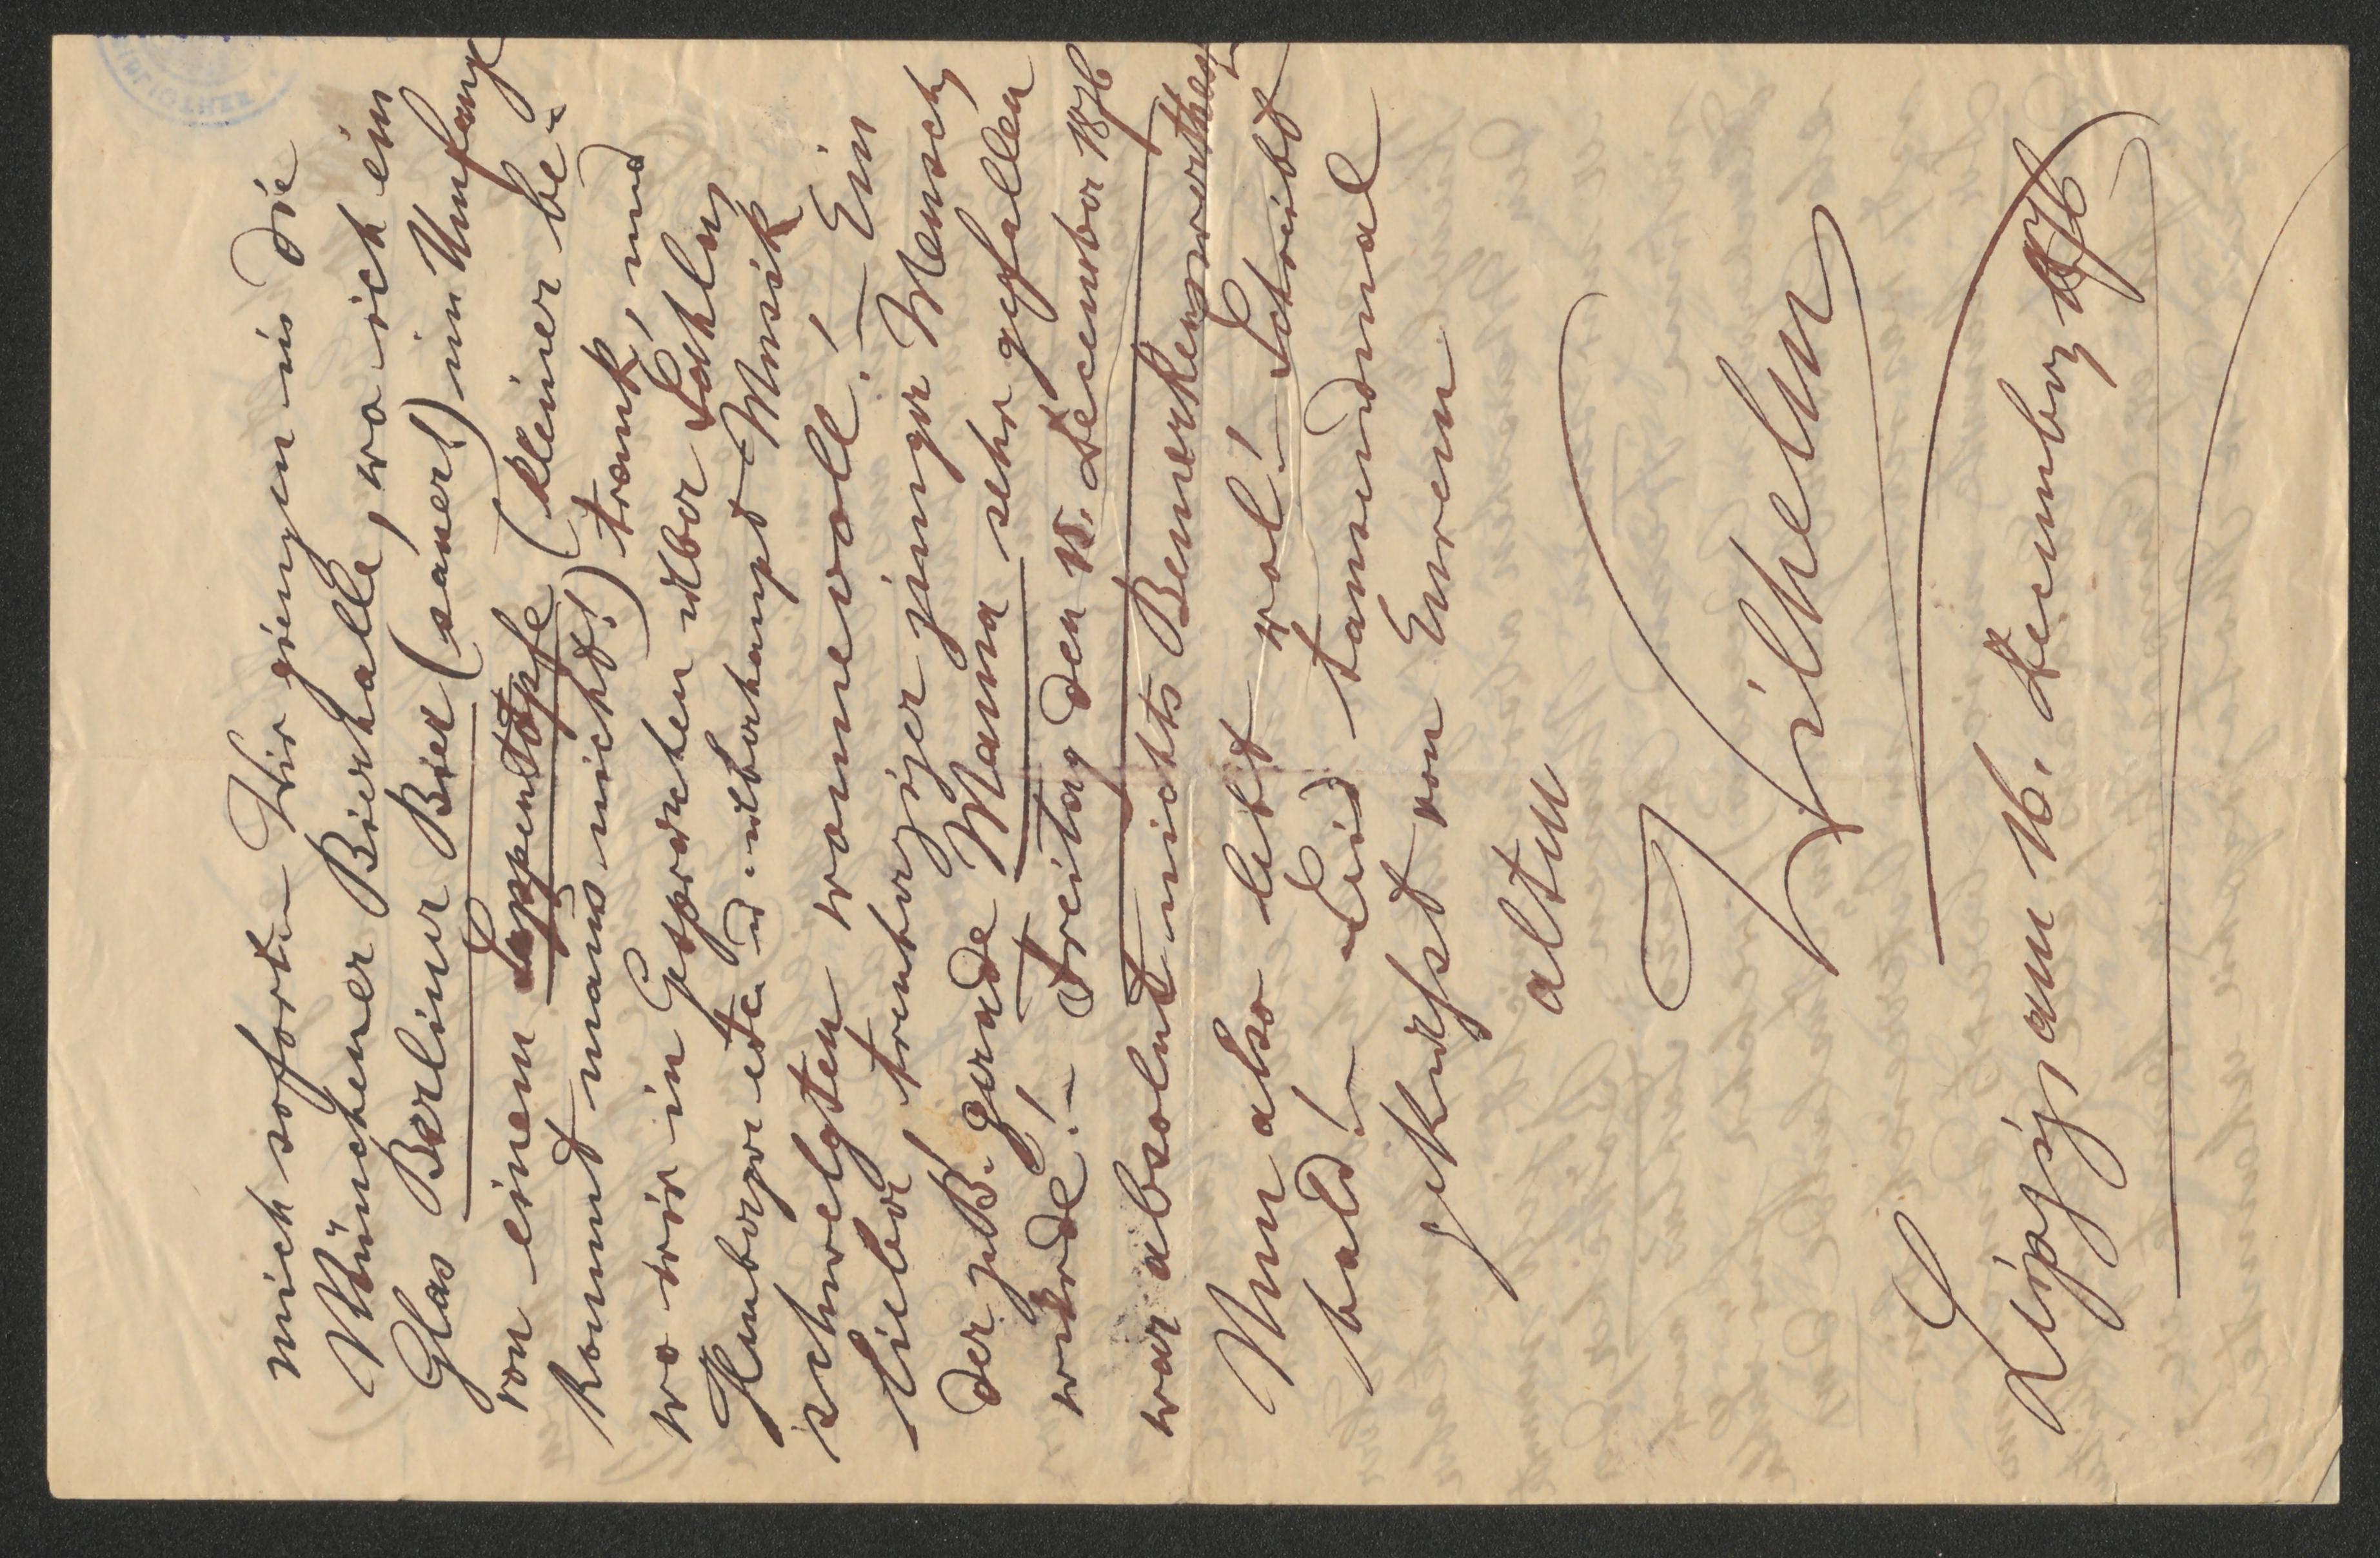 mich sofort. – Wir giengen in die
Münchener Bierhalle, wo ich ein
Glas Berliner Bier (saueres!) im Umfange
von einem Suppentopfe (kleiner be-
kommt mans nicht!) trank, und
wo wir in Gesprächen über Sahla,
Humborgr etc. u. überhaupt Musik
schwelgten wonnevoll! – Ein
lieber, treuherziger junger Mensch,
der z.B. gerade Manna sehr gefallen
würde! – Freitag den 15. December 1876
war absolut nichts Bemerkenswerthes.
Nun also lebt wol! – Schreibt
bald! – Seid tausendmal
geküsst von Eurem
alten
Wilhelm
Leipzig, am 16. Decemb. 1876
BIBLIOTHEK